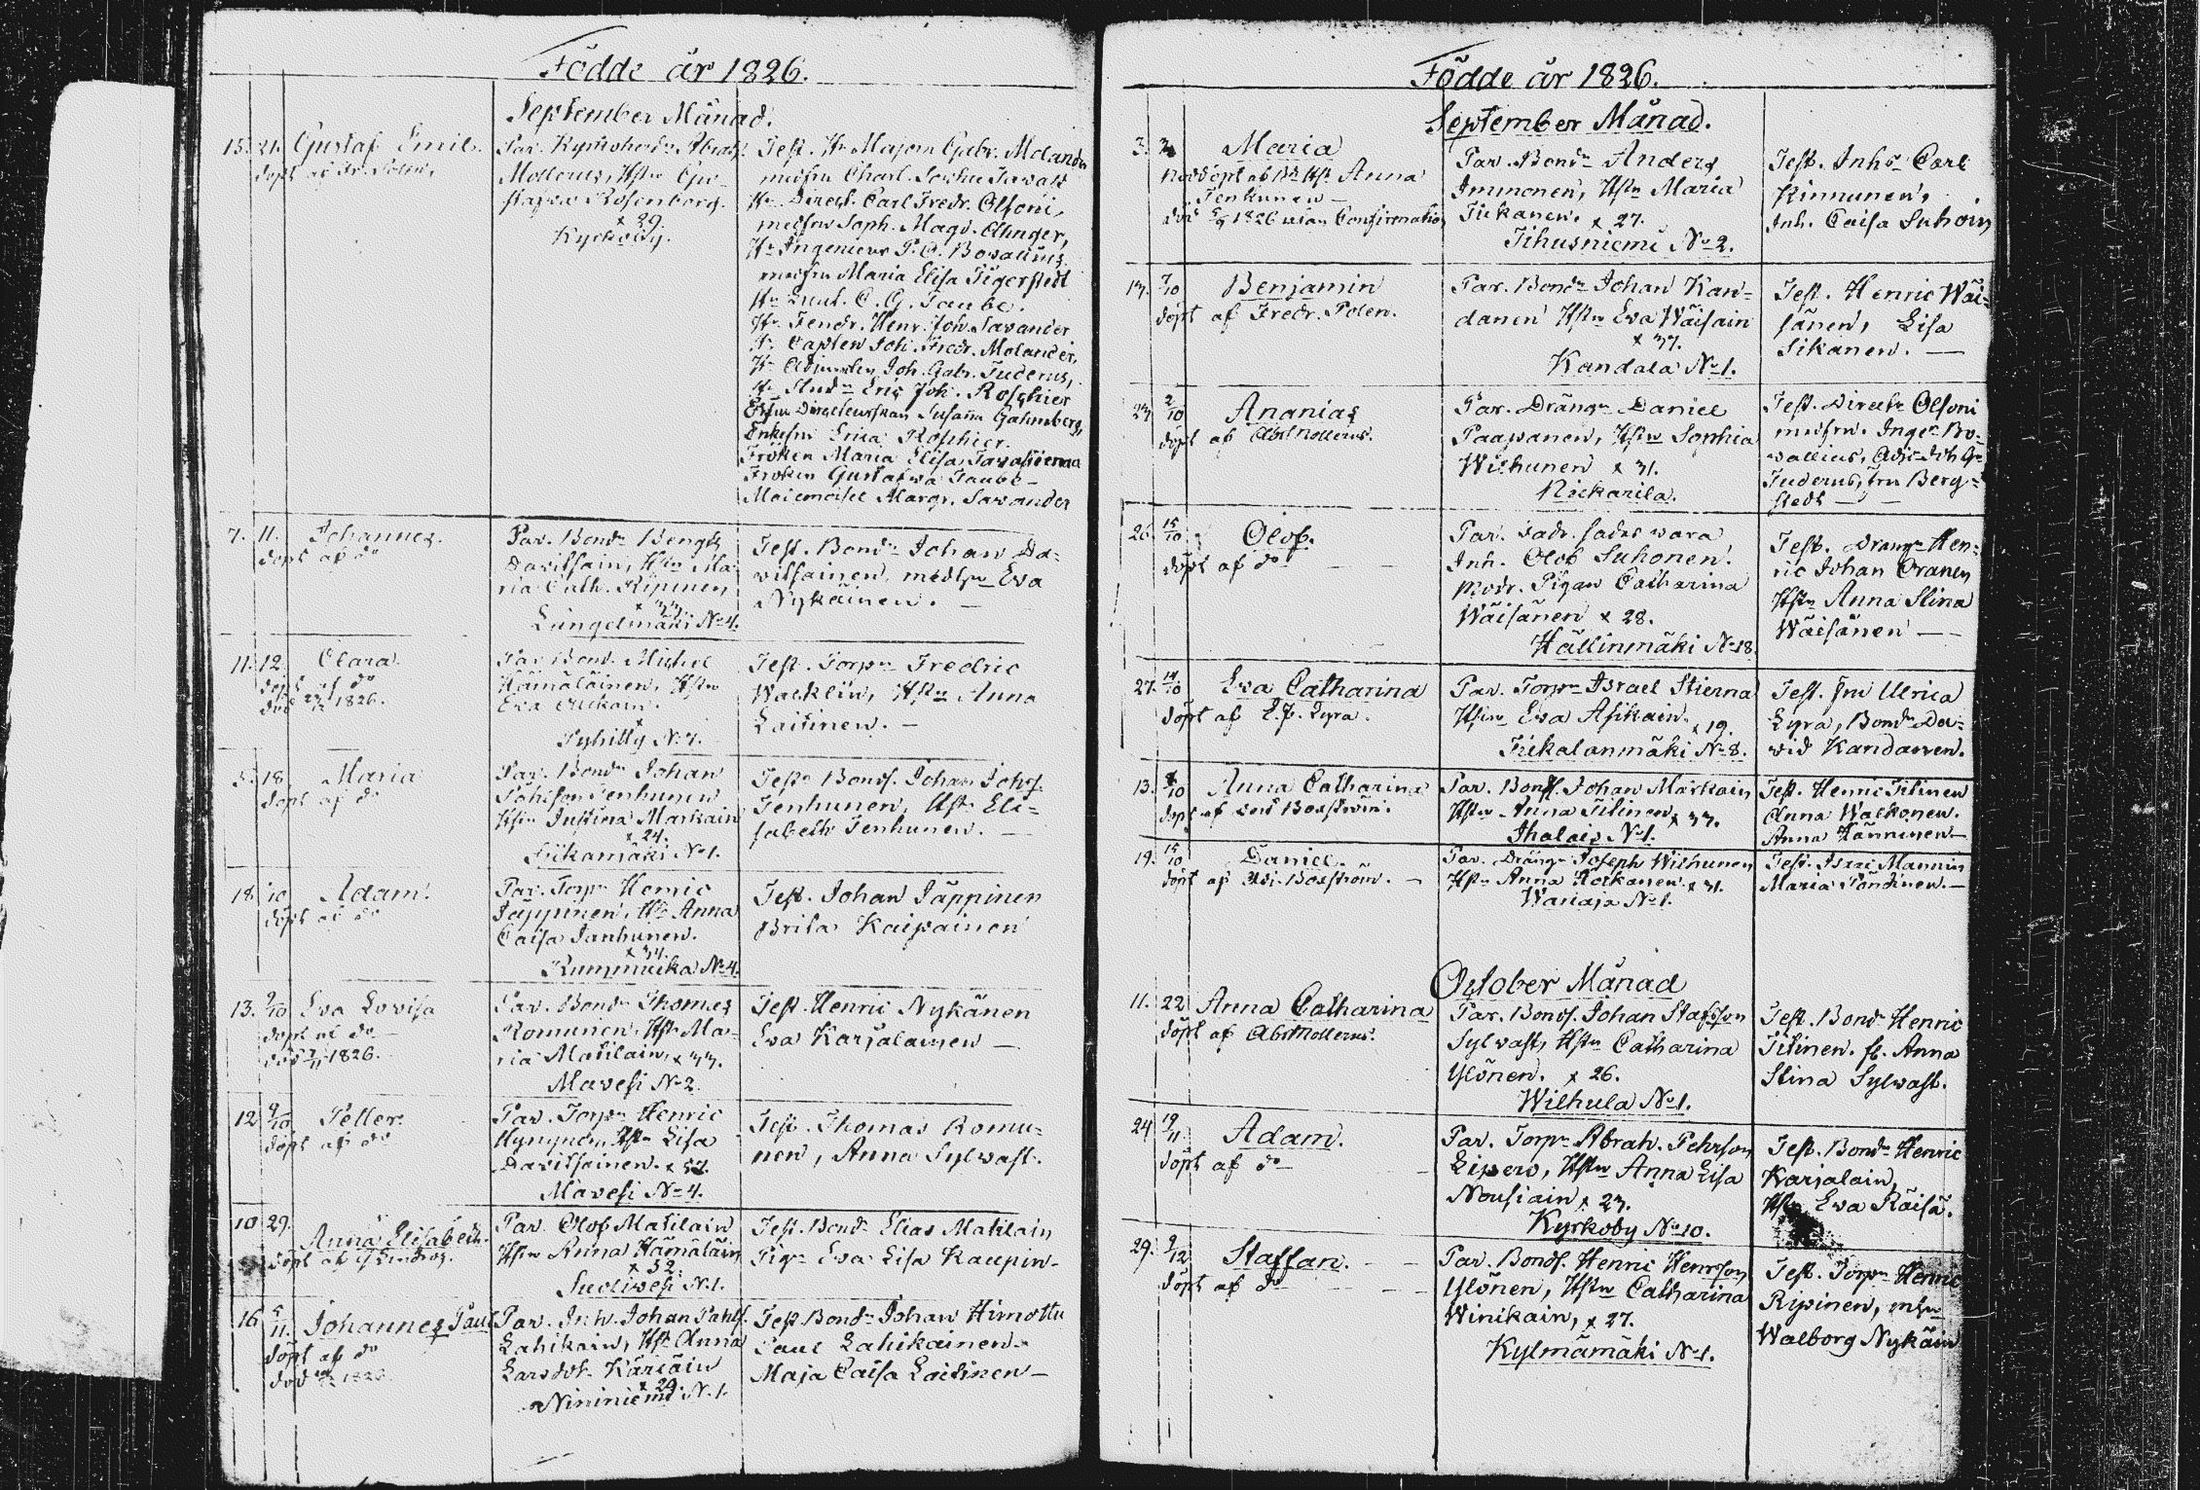 Födde år 1826.
September Månad.
15. 21. Gustaf Emil.
döpt af
Par. Kyrkoherdn Abrah.
Mollerus, Hstr Gu-
stafva Rosenborg.
x 29.
Kyrkoby.
Test. Hr Majorn Gabr. Molander
medfru Charl. Sophia
Hr Direct. Carl Fredr. Olsoni,
medfru Soph. Magd.
Hr Ingenieur P. A. Bovallius
medfru Maria Elisa Tigerstedt
Hr Lieut. C. G. Taube.
Hr Fendr. Henr. Joh. Savander
Hr Capten Joh. Fredr. Molander,
Hr Adjuncten Joh. Gabr. Tuderus,
Hr Studn Eric Joh. Roschier
Susanna Gahmberg,
Enkefru Erica Roschier.
Fröken Maria Elisa
Fröken Gustafva Taube-
Margr. Savander
7. 11. Johannes.
döpt af do
Par. Bondn Bengt
Davitsain, Hstr Ma-
ria Cath. Ripinen
x 33.
Längelmäki No 4.
Test. Bondn Johan Da-
vitsainen, medhu Eva
Nykäinen. —
11. 12. Clara.
döpt af do
död 1826.
Par. Bond. Michel
Hämäläinen, Hstr
Eva
No 7.
Test. Torpn Fredric
Wacklin, Hstr Anna
Laitinen. —
5. 18. Maria
döpt af do
Par. Bondn Johan
Tenhunen
Hstr Justina Markain
x 24.
Siikamäki No 1.
Test. Bonds. Johan Johs.
Tenhunen, Hstr Eli-
sabeth Tenhunen. —
18. Adam.
döpt af do
Par. Torpn Henric
Jäppinen, Hr Anna
Caisa Janhunen.
x 34.
Rummucka No 4.
Test. Johan Jäppinen
Brita Kaipainen
13. 2/10 Eva Lovisa
döpt af do —
död 1826.
Par. Bondn Thomas
Romunen, Hstr Ma-
ria Matilain, x 33.
Mavesi No 2.
Test. Henric Nykänen
Eva Karjalainen —
12. 9/10 Petter.
döpt af do
Par. Torpn Henric
Hynynen, Hstr Lisa
Davitsainen. x 37.
Mavesi No 4.
Test. Thomas Romu-
nen, Anna Sylvast.
10. 29. Anna Elisabeth.
döpt af
Par. Olof Matilain
Hstr Anna Hämäläin
x 32.
No 1.
Test. Bondn Elias Matilain
Pign Eva Lisa Kaupin-
16. 5/11. Johannes Paul
döpt af do
död 1826
Par. Inh. Johan Pahls.
Lahikain, Hstr Anna
Larsdot. Käriäin
x 29.
Nininiemi No 1.
Test. Bondn Johan Himottu
Paul Lahikainen.
Maja Caisa Laitinen —
Födde år 1826.
September Månad.
3. Maria
Nöddöpt af Anna
Tenhunen —
död 1826 utan Confirmation
Par. Bondn Anders
Immonen, Hstr Maria
Tiikanen. x 27.
Tihusniemi No 2.
Test. Inhs Carl
Kinnunen,
Inh. Caisa Suhoin
17. 7/10 Benjamin
döpt af Fredr. Polen.
Par. Bondn Johan Kan-
danen Hstr Eva Wäisain
x 37.
Kandala No 1.
Test. Henric Wäi-
sänen, Lisa
Sikanen. —
23. 2/10 Ananias
döpt af Abr. Mollerus.
Par. Drängn Daniel
Paapanen, Hstr Sophia
Wihunen x 31.
Nickarila.
Test. Directn Olsoni
medfru. Ingen Bo-
vallius, Adj. Joh. G.
Tuderus, fru Berg-
stedt — —
26. 15/10 Olof.
döpt af do — —
Par. sades vara
Inh. Olof Suhonen.
Modr. Pigan Catharina
Wäisänen x 28.
Hällinmäki No 18.
Test. Drängn Hen-
ric Johan Oranen
Hstr Anna Stina
Wäisänen — —
27. 14/10 Eva Catharina
döpt af Lyra.
Par. Torpn Israel Stierna
Hstr Eva Asikain.
x 19.
Tiikalanmäki No 8.
Test. fru Ulrica
Lyra, Bondn Da-
vid Kandanen.
13. 8/10 Anna Catharina
döpt af Boström.
Par. Bonds. Johan Markain
Hstr Anna Titinen x 37.
Ihalais No 1.
Test. Henric Titinen
Anna Walkonen.
Anna Hänninen —
19. 15/10 Daniel.
döpt af Adj. Boström. —
Par. Drängn Joseph Wihunen
Hstr Anna x 31.
No 1.
Test. Isac Mannin
Maria Pöndinen. —
October Månad
11. 22. Anna Catharina
döpt af Abr. Mollerus.
Par. Bonds. Johan Stafsson
Sylvast, Hstr Catharina
Ylönen. x 26.
Wilhula No 1.
Test. Bond. Henric
Titinen. fl. Anna
Stina Sylvast.
24. 19/11. Adam.
döpt af do —
Par. Torpn Abrah. Pehrson
Lipew, Hstr Anna Lisa
Nousiain x 23.
Kyrkoby No 10.
Test. Bondn Henric
Karjalain,
Hstr Eva Räisä.
29. 9/12 Staffan. — —
döpt af do — —
Par. Bonds. Henric Henrson
Ylönen, Hstr Catharina
Winikain, x 27.
Kylmämäki No 1.
Test. Torpn Henric
Ripinen, mhu
Walborg Nykäin